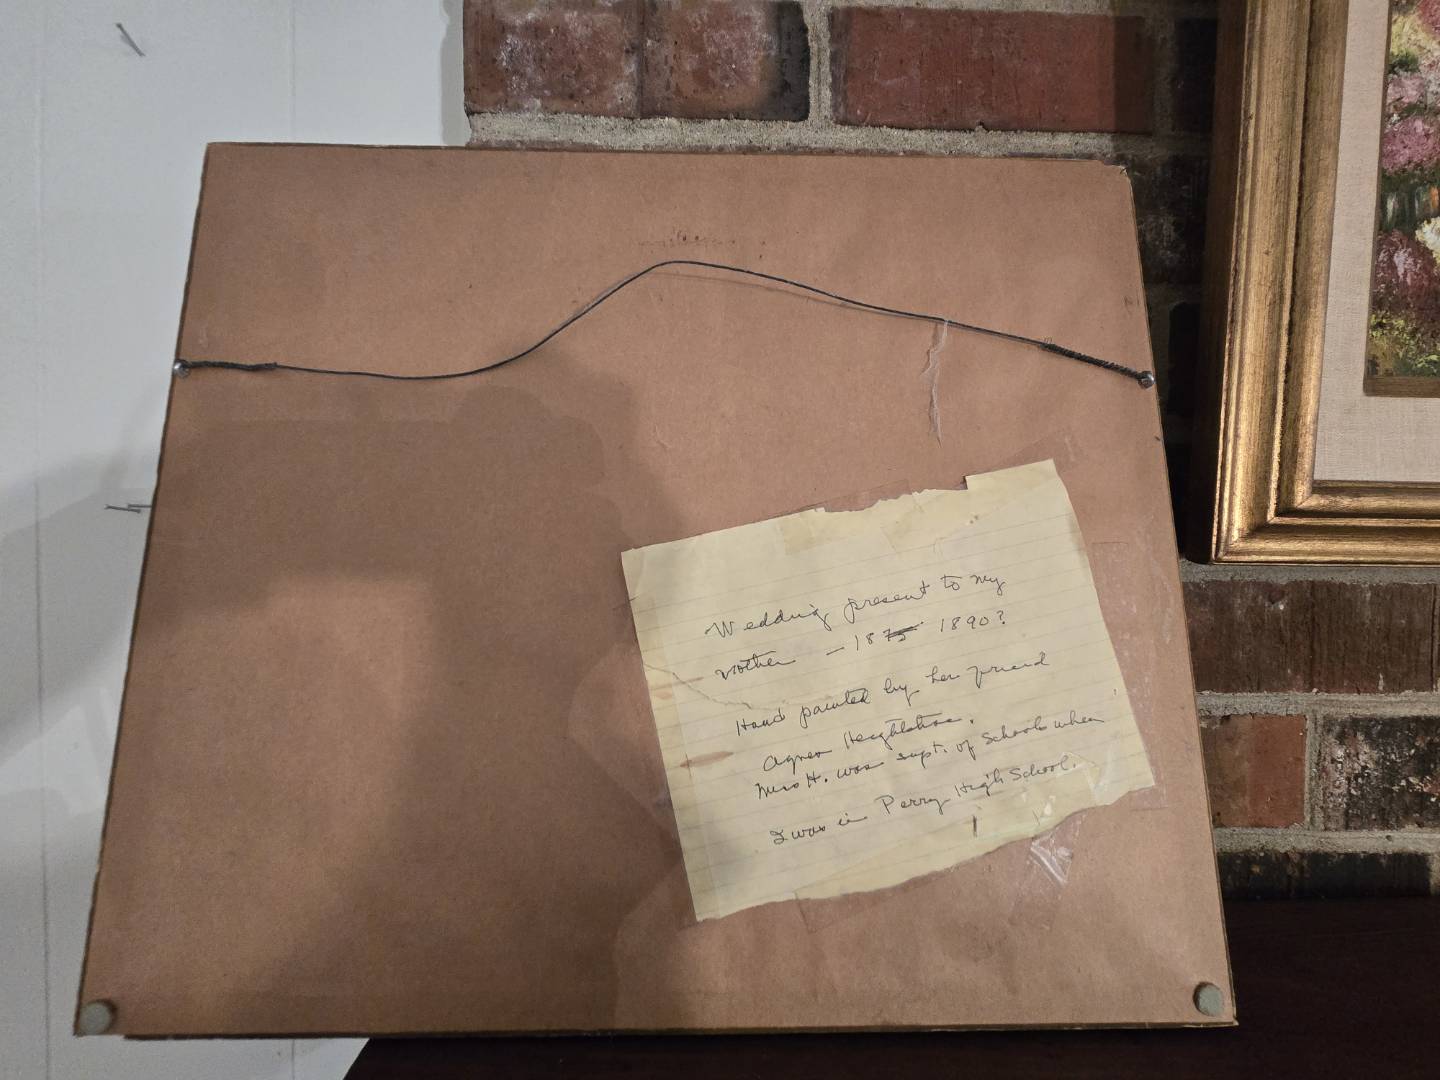 Wedding present to my
Mother — 1875 1890?
Hand painted by her friend
Agnes Heightstone.
Miss H. was supt. of Schools when
I was in Perry High School.